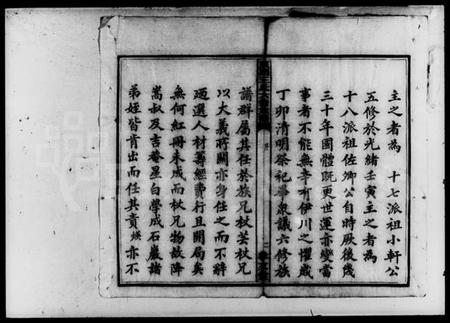 主之者為 十七派祖小軒公
五修於光緒壬寅主之者為
十八派祖佐卿公自時厥後幾
三十年國體既更世運亦變當
事者不能無辛有伊川之懼歲
丁卯清明祭祀畢眾議六修族
譜群屬其任於族兄杖芸杖兄
以大義所關亦身任之而不辭
迺選人材籌經費行且開局矣
無何紅冊未成而杖兄物故降
嵩叔及吉菴星白學成石巖諸
弟姪皆肯出而任其責族亦不